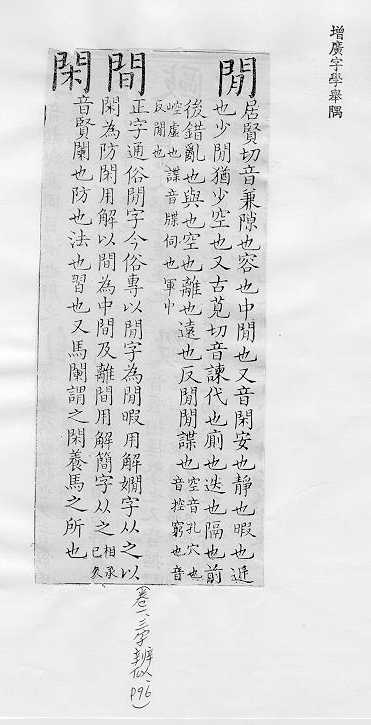 增廣字學舉隅
閒
居賢切音兼隙也容也中閒也又音閑安也靜也暇也近
也少閒猶少空也又古莧切音諫代也廁也迭也隔也前
後錯亂也與也空也離也遠也反閒閒諜也空音孔穴也音控窮也音
崆虛也諜音牒伺也軍中
反閒也
間
正字通俗閒字今俗專以閒字為閒暇用解嫺字从之以
閑為防閑用解以間為中間及離間用解簡字从之相承已久
閑
音賢闌也防也法也習也又馬闌謂之閑養馬之所也
(卷一、三字辨似、P96)